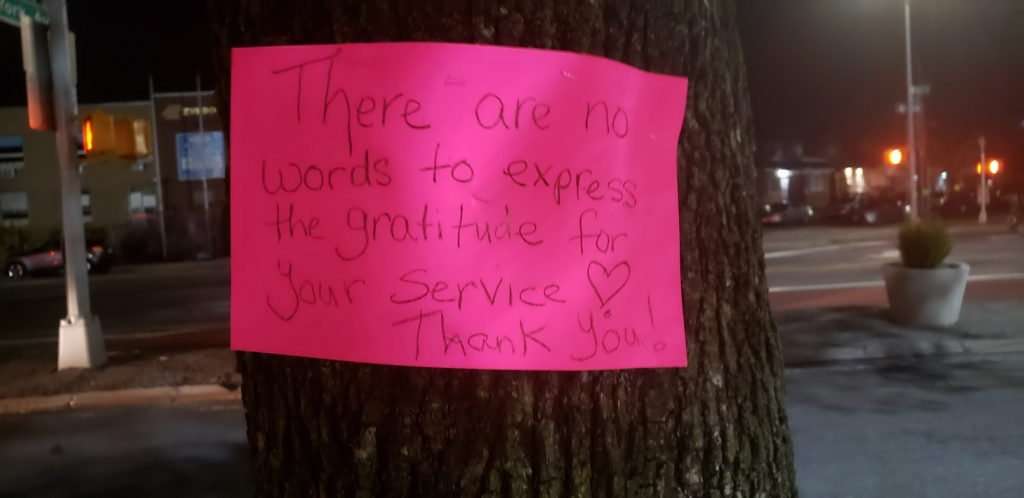 There are no
words to express
the gratitude for
your service ♡
Thank you!